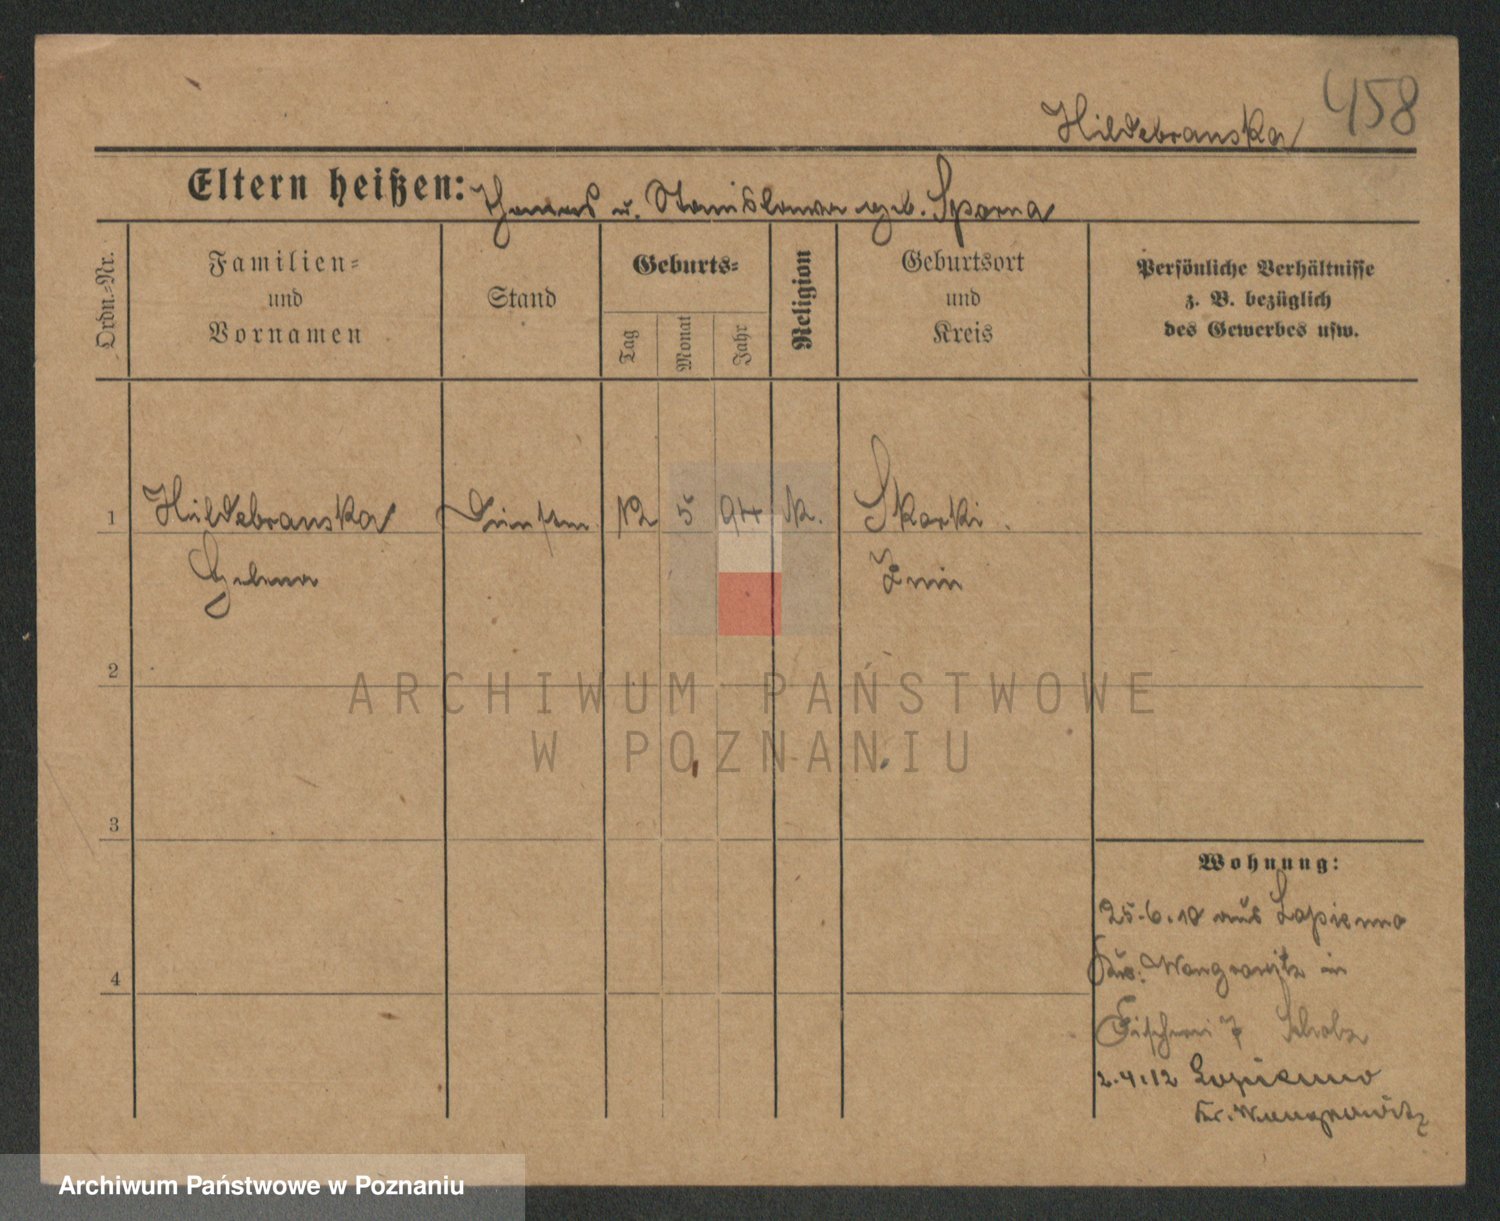 458
Hildebranska
Eltern heißen: Thomas u. Stanislawa geb. Sparna
Ordn.-Nr.
Familien-
und
Vornamen
Stand
Geburts-
Tag
Monat
Jahr
Religion
Geburtsort
und
Kreis
Persönliche Verhältnisse
z. B. bezüglich
des Gewerbes usw.
1
Hildebranska
Helena
12
5
94
K.
Skorki.
Znin
2
3
4
Wohnung:
25.6.10 aus Lopienno
Kr. Wongrowitz in
Fischerei 7 Scholz
2.4.12 Lopienno
Kr. Wongrowitz
ARCHIWUM PAŃSTWOWE
W POZNANIU
Archiwum Państwowe w Poznaniu